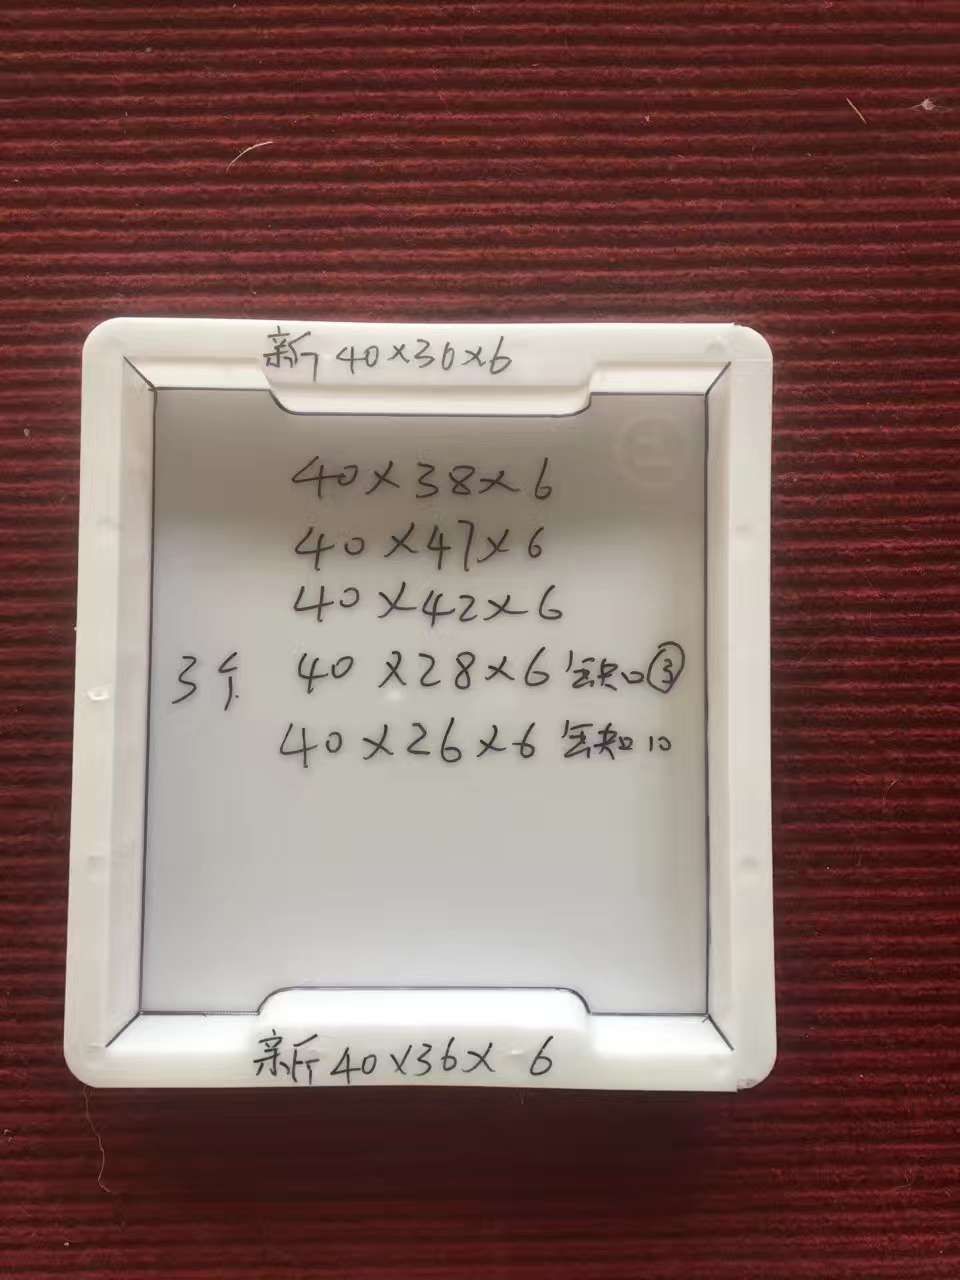 新 40×36×6
40×38×6
40×47×6
40×42×6
3个 40×28×6 缺口③
40×26×6 缺口 10
新 40×36× 6